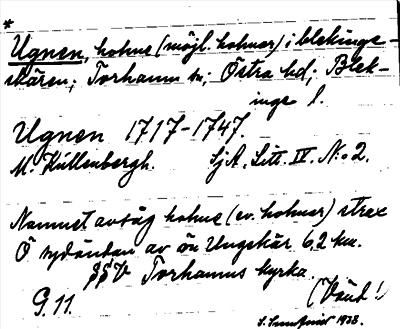 *
Ugnen, holme (möjl. holmar) i blekinge-
skären; Torhamn sn; Östra hd; Blek-
inge l.
Ugnen 1717-1747.
M. Küllenbergh. SjA. Litt. IV. N:o 2.
Namnet avsåg holme (ev. holmar) strax
Ö sydändan av ön Ungskär 6,2 km.
SSV Torhamns kyrka.
G.11. (Vänd!)
1938.